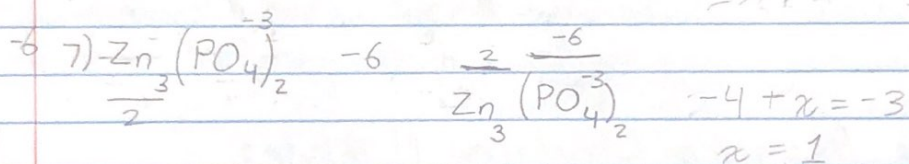 -6 7) Zn₃(PO₄)₂⁻³ -6 2 -6
2 Zn₃(PO₄⁻³)₂ -4 + x = -3
x = 1